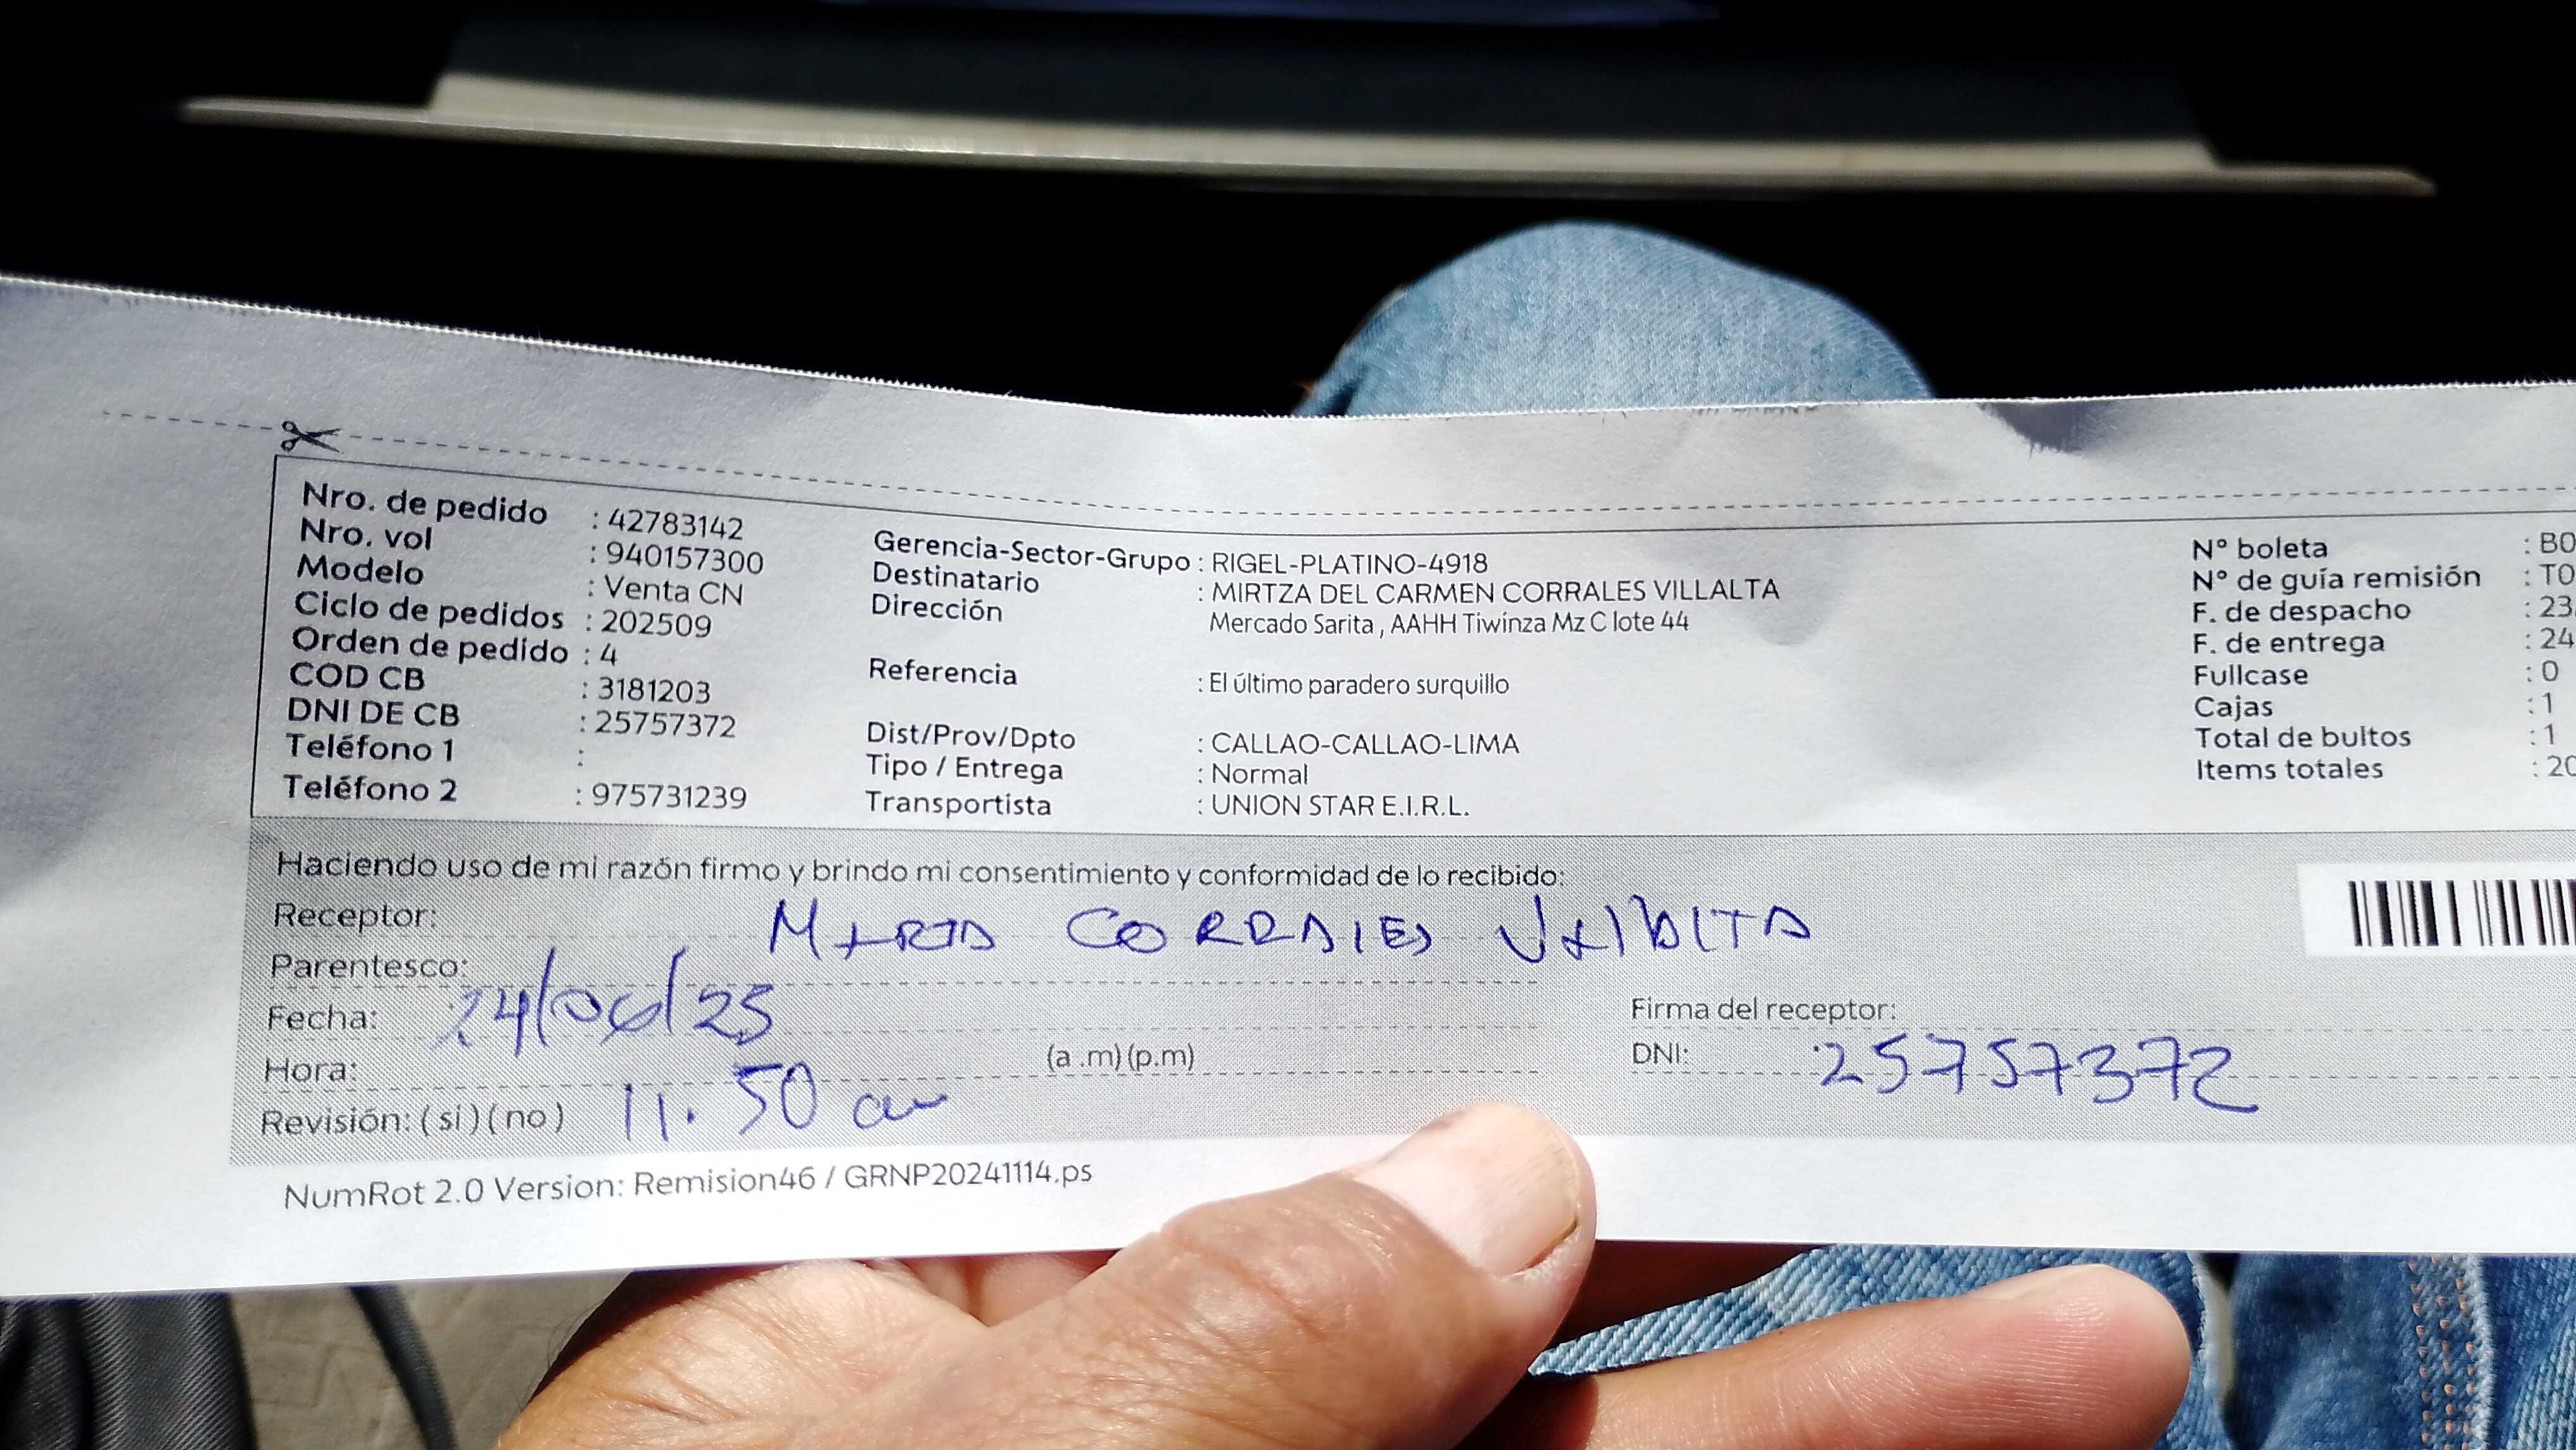 Nro. de pedido : 42783142
Nro. vol : 940157300
Modelo : Venta CN
Ciclo de pedidos : 202509
Orden de pedido : 4
COD CB : 3181203
DNI DE CB : 25757372
Teléfono 1 :
Teléfono 2 : 975731239
Gerencia-Sector-Grupo : RIGEL-PLATINO-4918
Destinatario : MIRTZA DEL CARMEN CORRALES VILLALTA
Dirección Mercado Sarita , AAHH Tiwinza Mz C lote 44
Referencia : El último paradero surquillo
Dist/Prov/Dpto : CALLAO-CALLAO-LIMA
Tipo / Entrega : Normal
Transportista : UNION STAR E.I.R.L.
N° boleta : B0
N° de guía remisión : T0
F. de despacho : 23
F. de entrega : 24
Fullcase : 0
Cajas : 1
Total de bultos : 1
Items totales : 20
Haciendo uso de mi razón firmo y brindo mi consentimiento y conformidad de lo recibido:
Receptor: CORRALES
Parentesco:
Fecha: 24/06/25
Hora: (a .m) (p.m)
11.50 am
Revisión: ( si ) ( no )
Firma del receptor:
DNI: 25757372
NumRot 2.0 Version: Remision46 / GRNP20241114.ps